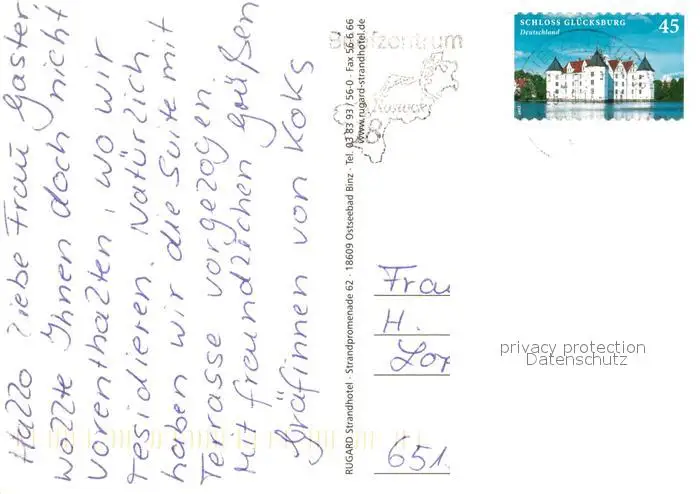 Hallo liebe Frau Gaster,
wollte Ihnen doch nicht
vorenthalten, wo wir
residieren. Natürlich
haben wir die Suite mit
Terrasse vorgezogen.
Mit freundlichen Grüßen
Gräfinnen von Koks
RUGARD Strandhotel · Strandpromenade 62 · 18609 Ostseebad Binz · Tel. 03 83 93 / 56-0 · Fax 56-6 66
www.rugard-strandhotel.de
Briefzentrum
SCHLOSS GLÜCKSBURG
Deutschland
45
Frau
H.
Lor
651
privacy protection
Datenschutz